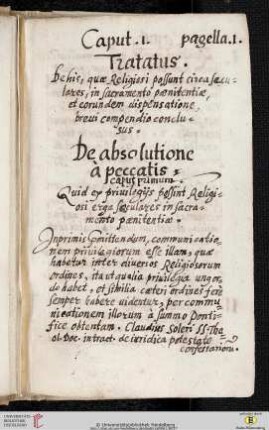 Caput .1. pagella.1.
Tratatus.
De his, quæ Religiosi possunt circa sæcu-
lares, in sacramento pœnitentiæ,
et eorundem dispensatione,
brevi compendio conclu-
sus.
De absolutione
a peccatis.
caput primum.
Quid ex privilegijs possint Religi-
osi erga sæculares in sacra-
mento pœnitentiæ.
Inprimis communicatio
nem privilegiorum esse illam, quæ
habetur inter diversos Religiosorum
ordines, ita ut qualia privilegia unus or-
do habet, et similia cæteri ordines fere
semper habere videntur, per commu
nicationem illorum à summo Ponti-
fice obtentam. Claudius Soleri SS. Theo
Doc. in tract. de iuridica potestate
confessarioru.
UNIVERSITÄTS-
BIBLIOTHEK
HEIDELBERG
© Universitätsbibliothek Heidelberg